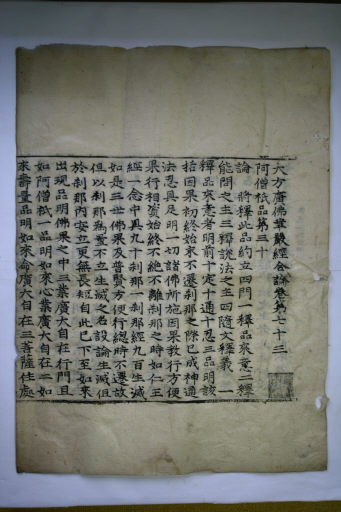 大方廣佛華嚴經合論卷第七十三
阿僧祇品第三十
論 將釋此品約立四門一釋品來意二釋
能問之主三釋說法之主四隨文釋義一
釋品來意者明前十定十通十忍三品明該
括因果初終始末不遷剎那之際已成神通
法忍具足明一切諸佛所施因果教行方便
果行相資始終不絶不離剎那之時如仁王
經一念中具九十剎那一剎那經九百生滅
如是三世佛果及普賢方便行總時不遷故
但以剎那爲量不立生滅之名設論生滅但
於剎那內安立更無長短自此已下至如來
出現品明佛果之中三業廣大自在行門且
如阿僧祇一品明如來心業廣大自在二如
來壽量品明如來命廣大自在三菩薩住處